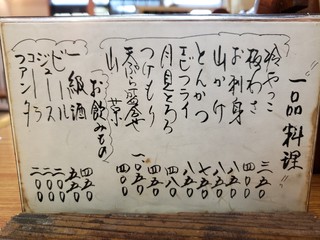 一品料理
冷やっこ 三五〇
板わさ 四〇〇
お刺身 八五〇
山かけ 八五〇
とんかつ 七五〇
えびフライ 八五〇
月見とろろ 四八〇
つけもり 四五〇
天ぷら盛合せ
山菜 四〇〇
お飲みもの
一級酒 四五〇
ビール 五五〇
ジュース 二〇〇
コーラ 二〇〇
ファンタ 二〇〇